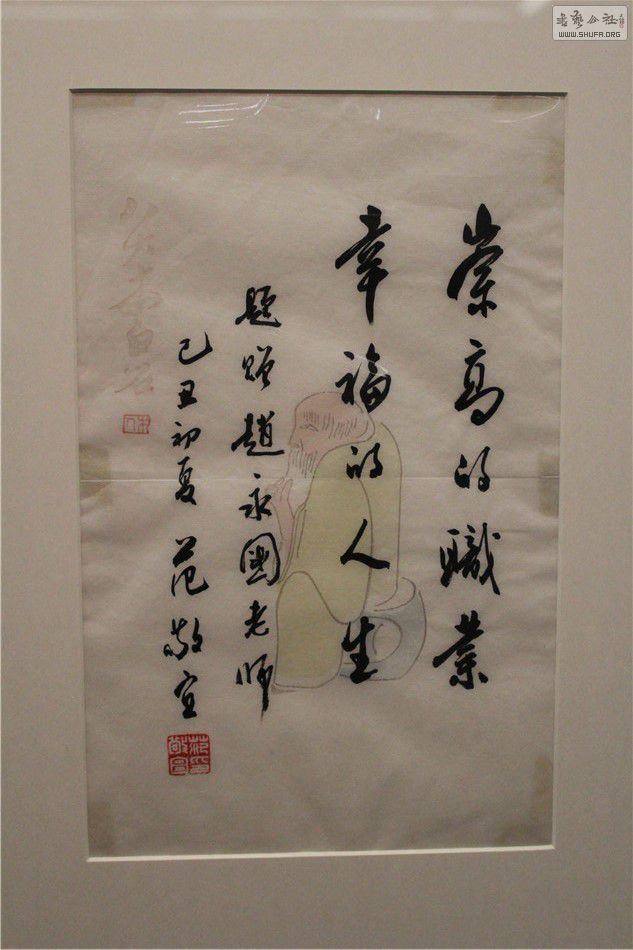 崇高的職業
幸福的人生
題贈趙永國老師
己丑初夏 范敬宜
范敬宜
書藝公社
WWW.SHUFA.ORG